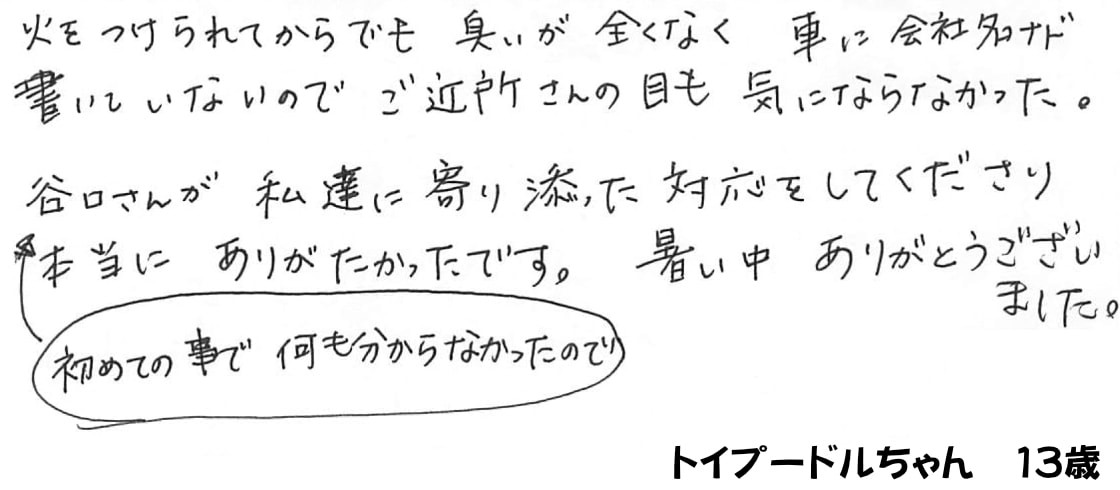 火をつけられてからでも 臭いが 全くなく 車に 会社名ナド
書いていないので ご近所さんの目も 気にならなかった。
谷口さんが 私達に寄り添った対応をしてくださり
本当に ありがたかったです。 暑い中 ありがとうござい
ました。
初めての事で 何も分からなかったので
トイプードルちゃん 13歳